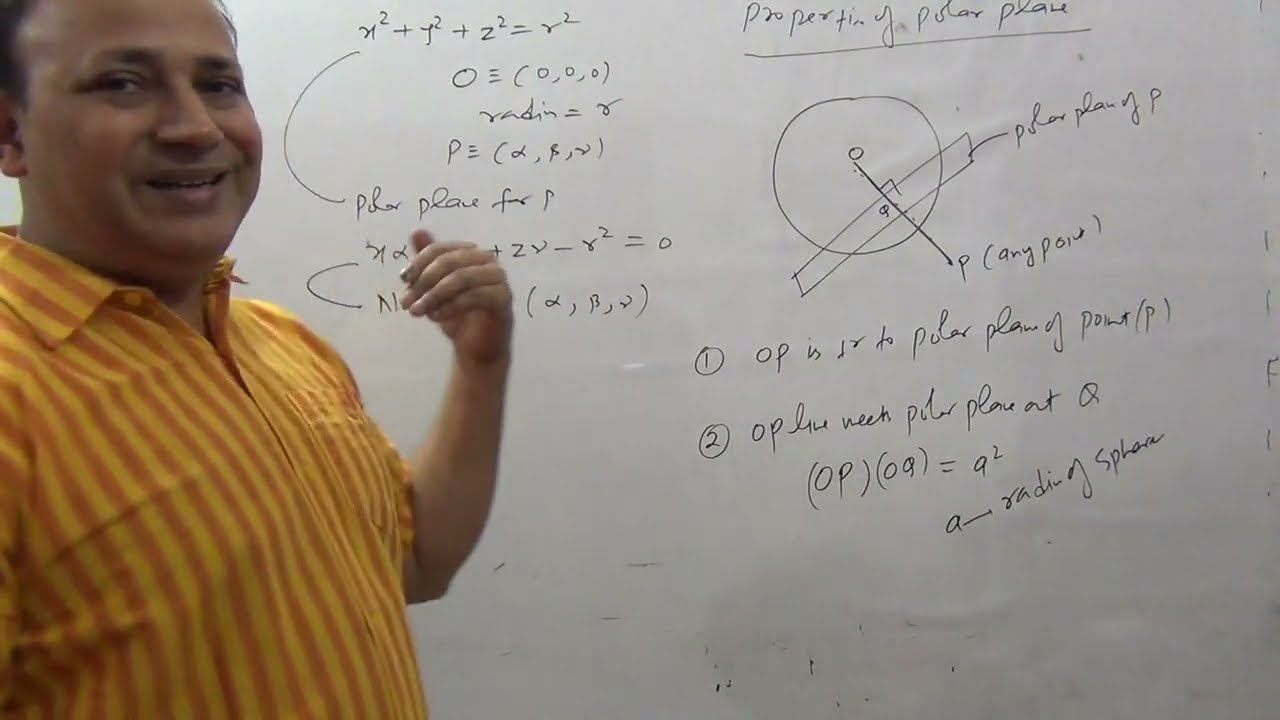 x² + y² + z² = r²
O ≡ (0,0,0)
radin = r
P ≡ (α, β, ν)
polar plane for P
xα + zν − r² = 0
(α, β, ν)
Propertin of polar plane
O
polar plan of P
Q
P (any point)
① OP is ⊥r to polar plan of point (P)
② OP line meets polar plane at Q
(OP)(OQ) = a²
a → radin of sphere
F